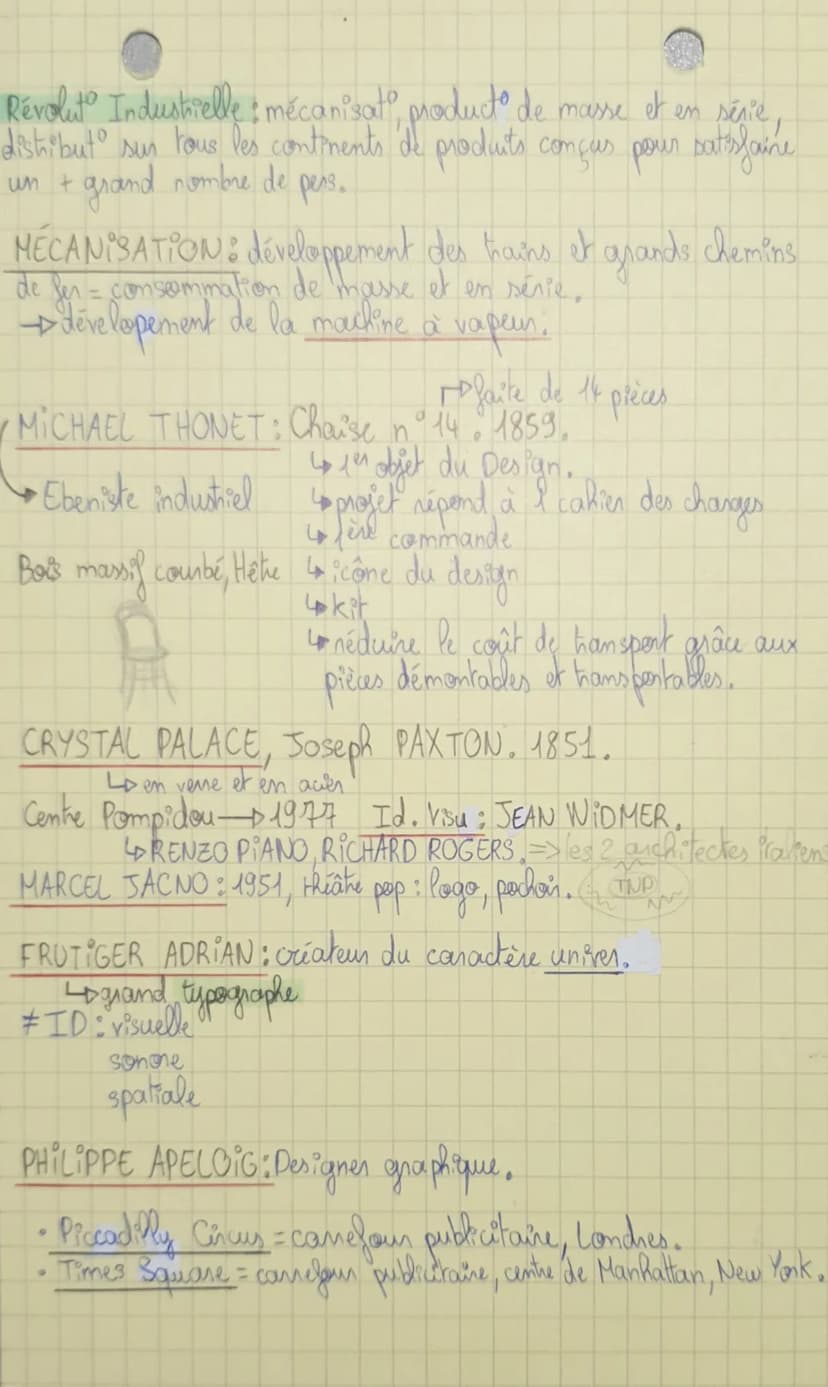 Révolut° Industrielle : mécanisat°, product° de masse et en série,
distribut° sur tous les continents de produits conçus pour satisfaire
un + grand nombre de pers.
MÉCANISATION : développement des trains et grands chemins
de fer = consommation de masse et en série.
→ dévelopement de la machine à vapeur.
↱ faite de 14 pièces
MICHAEL THONET : Chaise n°14. 1859.
↳ 1er objet du Design.
→ Ebeniste industriel ↳ projet répond à 1 cahier des charges
↳ 1ère commande
Bois massif courbé, Hêtre ↳ icône du design
↳ kit
↳ réduire le coût de transport grâce aux
pièces démontables et transportables.
CRYSTAL PALACE, Joseph PAXTON. 1851.
↳ en verre et en acier
Centre Pompidou → 1977 Id. Visu : JEAN WIDMER.
↳ RENZO PIANO, RICHARD ROGERS. => les 2 architectes italiens
MARCEL JACNO : 1951, théâtre pop : logo, pochoir. TNP
FRUTIGER ADRIAN : créateur du caractère univer.
↳ grand typographe
≠ ID : visuelle
sonore
spatiale
PHILIPPE APELOIG : Designer graphique.
• Piccadilly Circus = carrefour publicitaire, Londres.
• Times Square = carrefour publicitaire, centre de Manhattan, New York.